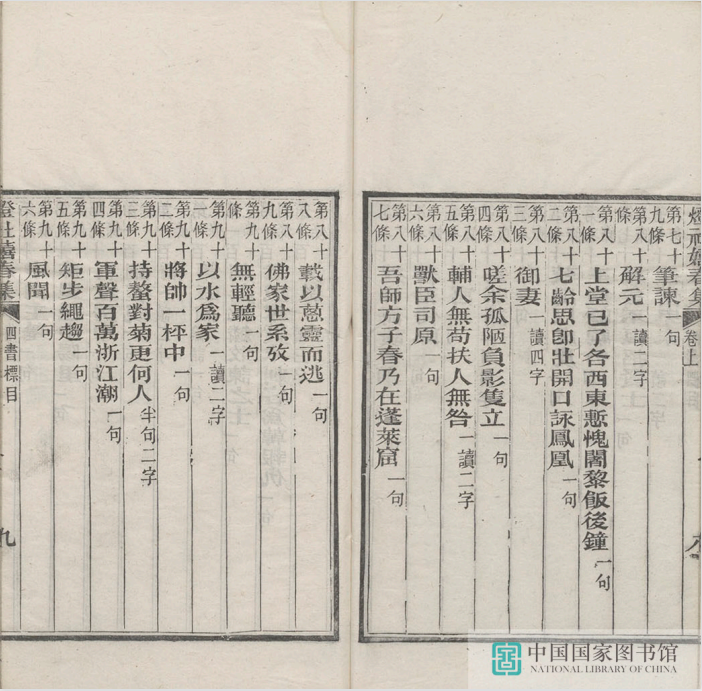 燈社嬉春集 卷上
第七十九條 筆諫 一句
第八十條 解元 一讀二字
第八十一條 上堂已了各西東慙愧闍黎飯後鐘 一句
第八十二條 七齡思卽壯開口詠鳳凰 一句
第八十三條 御妻 一讀四字
第八十四條 嗟余孤陋負影隻立 一句
第八十五條 輔人無苟扶人無咎 一讀二字
第八十六條 獸臣司原 一句
第八十七條 吾師方子春乃在蓬萊窟 一句
第八十八條 載以蔥靈而逃 一句
第八十九條 佛家世系攷 一句
第九十條 無輕聽 一句
第九十一條 以水爲家 一讀二字
第九十二條 將帥一枰中 一句
第九十三條 持螯對菊更何人 半句二字
第九十四條 軍聲百萬浙江潮 一句
第九十五條 矩步繩趨 一句
第九十六條 風聞 一句
燈社嬉春集 四書標目 九
中国国家图书馆
NATIONAL LIBRARY OF CHINA